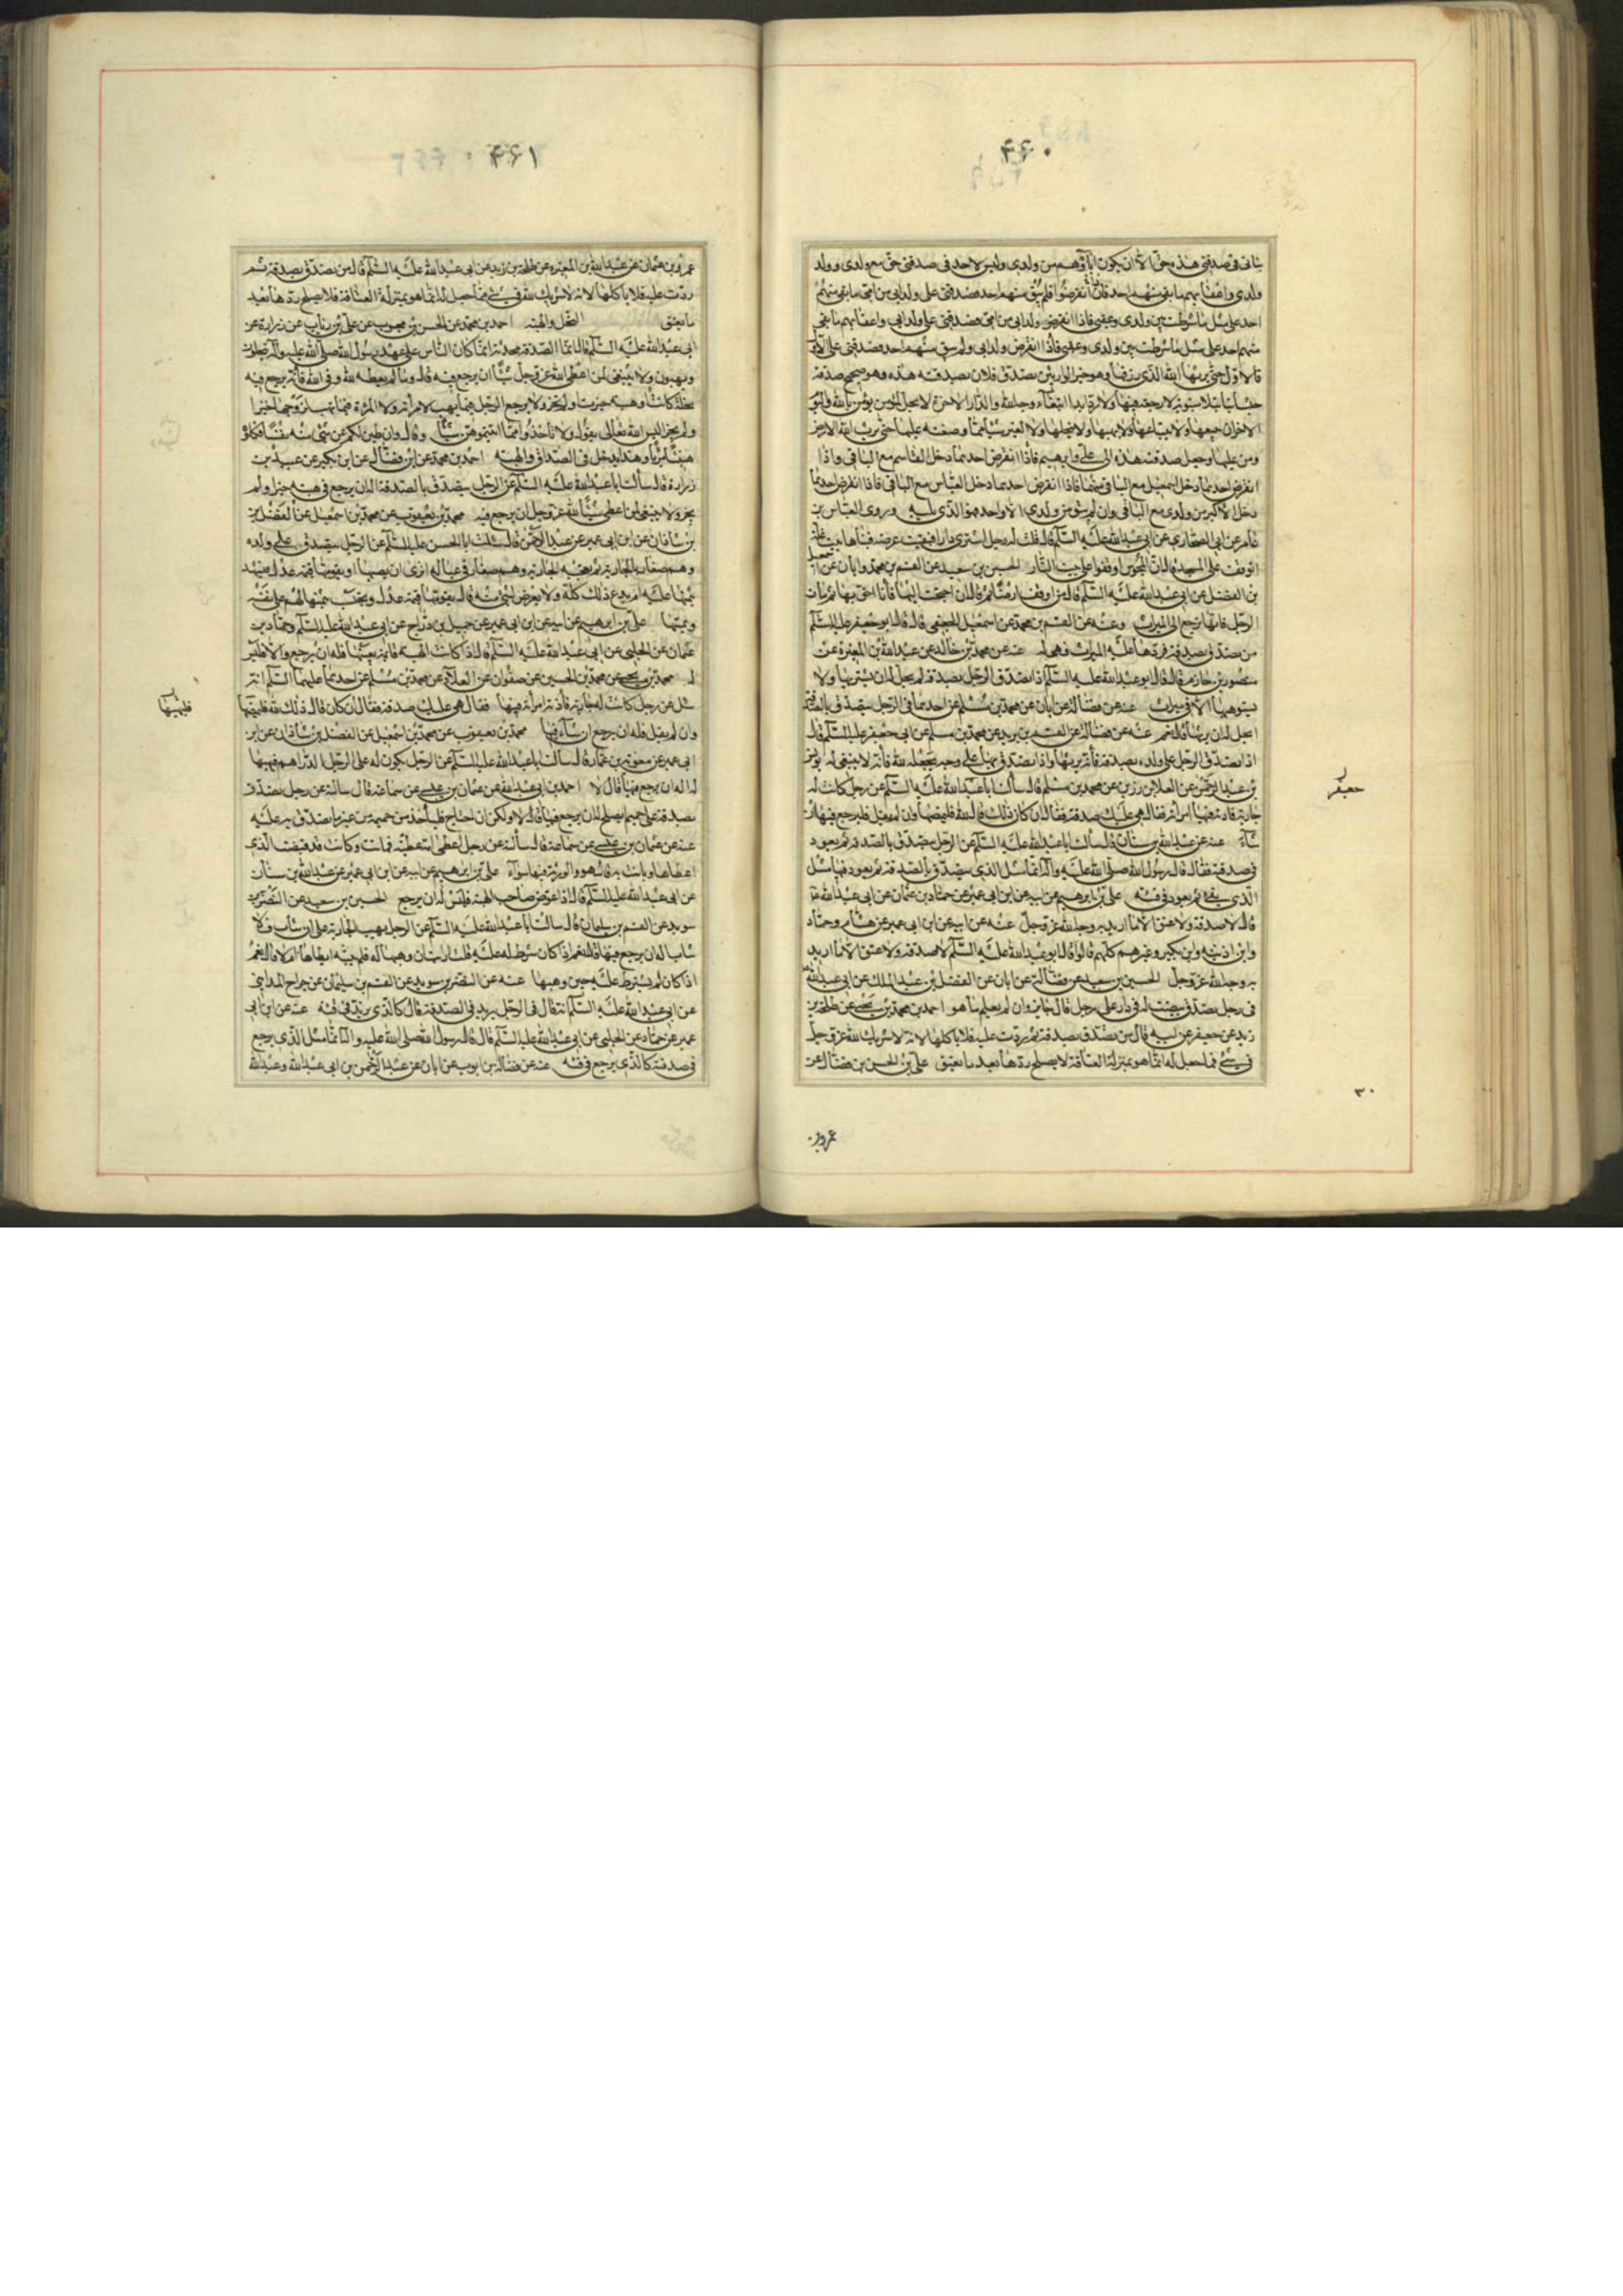 ۴۶۰
شاف في صدقتي هذه بحق الا ان يكون اباؤهم من ولدي وليس لاحد في صدقتي حق مع ولدي وولد
ولدي واعقابهم ما بقي منهم احد فان انقرضوا فلم يبق منهم احد فصدقتي على ولد ابي من امي ما بقي منهم
احد على مثل ما شرطت بين ولدي وعقبي فاذا انقرض ولد ابي من امي فصدقتي على ولد ابي واعقابهم ما بقي
منهم احد على مثل ما شرطت بين ولدي وعقبي فاذا انقرض ولد ابي ولم يبق منهم احد فصدقتي على الاولى
فالاول حتى يرثها الله الذي رزقها وهو خير الوارثين تصدق فلان بصدقته هذه وهو صحيح صدقة
حبسا بتا بتلا مبتوتة لا رجعة فيها ولا رد ابدا ابتغاء وجه الله والدار الاخرة لا يحل لمؤمن يؤمن بالله واليوم
الاخر ان يبيعها ولا يبتاعها ولا يهبها ولا ينحلها ولا يغير شيئا مما وصفته عليها حتى يرث الله الارض
ومن عليها وجعل صدقته هذه الى علي وابرهيم فاذا انقرض احدهما دخل القاسم مع الباقي واذا
انقرض احدهما دخل اسمعيل مع الباقي منهما فاذا انقرض احدهما دخل العباس مع الباقي فاذا انقرض احدهما
دخل الاكبر من ولدي مع الباقي وان لم يبق من ولدي الا واحد فهو الذي يليه وروى العباس بن
عامر عن ابي الصحاري عن ابي عبد الله عليه السلم قال قلت له رجل اشترى دارا فبقيت عرصة فبناها بيت غلة
اتوقف على المسجد قال ان المجوس اوقفوا على بيت النار الحسين بن سعيد عن القسم بن محمد وابان عن اسمعيل
بن الفضل عن ابي عبد الله عليه السلم
الرجل فانها ترجع الى الميراث وعنه عن القسم بن محمد عن اسمعيل الجعفي قال قال ابو جعفر عليه السلم
من تصدق بصدقة فردها عليه الميراث فهي له عنه عن محمد بن خالد عن عبد الله بن المغيرة عن
منصور بن حازم قال قال ابو عبد الله عليه السلم اذا تصدق الرجل بصدقة لم يحل له ان يشتريها ولا
يستوهبها الا في ميراث عنه عن فضالة عن ابان عن محمد بن مسلم عن احدهما في الرجل يتصدق بالصدقة
ايحل له ان يرثها قال نعم عنه عن فضالة عن القسم بن بريد عن محمد بن مسلم عن ابي جعفر عليه السلم قال
اذا تصدق الرجل على ولده بصدقة فانه يرثها واذا تصدق بها على وجه يجعله لله فانه لا ينبغي له يونس
بن عبد الرحمن عن العلا بن رزين عن محمد بن مسلم قال سألت ابا عبد الله عليه السلم عن رجل كانت له
جارية فاذته فيها امرأته فقال هي عليك صدقة فقال ان كان ذلك قال لله فليمضها وان لم يقل فليرجع فيها ان
شآء عنه عن عبد الله بن سنان قال سألت ابا عبد الله عليه السلم عن الرجل يتصدق بالصدقة ثم يعود
في صدقته فقال قال رسول الله صلى الله عليه واله انما مثل الذي يتصدق بالصدقة ثم يعود فيها مثل
الذي يقئ ثم يعود في قيئه علي بن ابرهيم عن ابيه عن ابن ابي عمير عن حماد بن عثمان عن ابي عبد الله ع
قال لا صدقة ولا عتق الا ما اريد به وجه الله عز وجل عنه عن ابيه عن ابن ابي عمير عن هشام وحماد
وابن اذينه وابن بكير وغيرهم كلهم قالوا قال ابو عبد الله عليه السلم لا صدقة ولا عتق الا ما اريد
به وجه الله عز وجل الحسين بن سعيد عن فضالة عن ابان عن الفضل بن عبد الملك عن ابي عبد الله
في رجل تصدق بنصيب له في دار على رجل قال جايز وان لم يعلم ما هو احمد بن محمد بن يحيى عن طلحة بن
زيد عن جعفر عن ابيه قال من تصدق بصدقة ثم ردت عليه فلا ياكلها لانه لا شريك لله عز وجل
في شئ مما جعل له انما هو بمنزلة العتاقة لا يصلح ردها بعد ما يعتق علي بن الحسن بن فضال عن
جعفر
۳۰
عمرو بن
۴۶۱
عمرو بن عثمان عن عبد الله بن المغيره عن طلحة بن زيد عن ابي عبد الله عليه السلم قال من تصدق بصدقة ثم
ردت عليه فلا ياكلها لانه لا شريك لله في شئ مما جعل له انما هو بمنزلة العتاقة فلا يصلح ردها بعد
ما يعتق النحل والهبة احمد بن محمد عن الحسن بن محبوب عن علي بن رئاب عن زرارة عن
ابي عبد الله عليه السلم قال انما الصدقة محدثة انما كان الناس على عهد رسول الله صلى الله عليه واله ينحلون
ويهبون ولا ينبغي لمن اعطى الله عز وجل شيئا ان يرجع فيه قال وما لم يعطه لله وفي الله فانه يرجع فيه
نحلة كانت او هبة حيزت او لم تحز ولا يرجع الرجل فيما يهب لامرأته ولا المرءة فيما تهب لزوجها حيز او
لم يحز اليس الله تعالى يقول ولا تأخذوا مما اتيتموهن شيئا وقال وان طبن لكم عن شئ منه نفسا فكلوه
هنيئا مريئا وهذا يدخل في الصداق والهبة احمد بن محمد عن ابن فضال عن ابن بكير عن عبيد بن
زرارة قال سألت ابا عبد الله عليه السلم عن الرجل يتصدق بالصدقة اله ان يرجع في هبته حيز او لم
يحز ولا ينبغي لمن اعطى شيئا لله عز وجل ان يرجع فيه محمد بن يعقوب عن محمد بن اسمعيل عن الفضل بن
بن شاذان عن ابن ابي عمير عن عبد الرحمن قال سألت ابا الحسن عليه السلم عن الرجل يتصدق على ولده
وهم صغار بالجارية ثم يعجبه الجارية وهم صغار في عياله اترى ان يصيبها او يقومها قيمة عدل فيشهد
بثمنها عليه ام يدع ذلك كله ولا يعرض لشئ منه قال يقومها قيمة عدل ويحتسب بثمنها لهم على نفسه
ويمسها علي بن ابرهيم عن ابيه عن ابن ابي عمير عن جميل بن دراج عن ابي عبد الله عليه السلم وحماد بن
عثمان عن الحلبي عن ابي عبد الله عليه السلم قال اذا كانت الهبة قائمة بعينها فله ان يرجع والا فليس
له محمد بن يحيى عن محمد بن الحسين عن صفوان عن العلاء عن محمد بن مسلم عن احدهما عليهما السلم انه
سئل عن رجل كانت له جارية فاذته امرأته فيها فقال هي عليك صدقة فقال ان كان قال ذلك لله فليمضها
وان لم يقل فله ان يرجع ان شاء فيها محمد بن يعقوب عن محمد بن اسمعيل عن الفضل بن شاذان عن ابن
ابي عمير عن معوية بن عمار قال سألت ابا عبد الله عليه السلم عن الرجل يكون له على الرجل الدراهم فيهبها
له اله ان يرجع فيها قال لا احمد بن ابي عبد الله عن عثمان بن عيسى عن سماعة قال سالته عن رجل تصدق
بصدقة على حميم ايصلح له ان يرجع فيها قال لا ولكن ان احتاج فليأخذ من حميمه من غير ما تصدق به عليه
عنه عن عثمان بن عيسى عن سماعة قال سألته عن رجل اعطى امه عطية فماتت وكانت قد قبضت الذي
اعطاها وبانت به قال هو والورثة فيها سوآء علي بن ابرهيم عن ابيه عن ابن ابي عمير عن عبد الله بن سنان
عن ابي عبد الله عليه السلم قال اذا عوض صاحب الهبة فليس له ان يرجع الحسين بن سعيد عن النضر بن
سويد عن القسم بن سليمان قال سالت ابا عبد الله عليه السلم عن الرجل يهب الجارية على ان يثاب فلا
يثاب له ان يرجع فيها قال نعم اذا كان شرط له عليه قلت ارايت ان وهبها له فلم يثبه ايطاها ام لا قال نعم
اذا كان لم يشترط عليه حين وهبها عنه عن النضر بن سويد عن القسم بن سليمان عن جراح المدايني
عن ابي عبد الله عليه السلم انه قال في الرجل يرتد في الصدقة قال كالذي يرتد في قيئه عنه عن ابن ابي
عمير عن حماد عن الحلبي عن ابي عبد الله عليه السلم قال قال رسول الله صلى الله عليه واله انما مثل الذي يرجع
في صدقته كالذي يرجع في قيئه عنه عن فضالة بن ايوب عن ابان عن عبد الرحمن بن ابي عبد الله وعبد الله
فليمضها